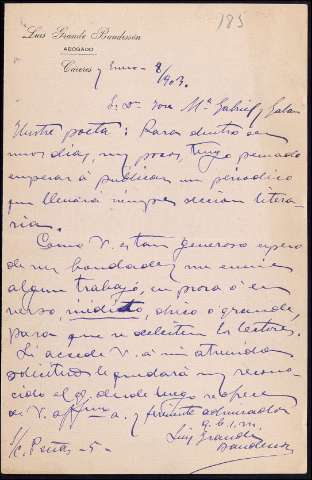 185
Luis Grande Baudessón
ABOGADO
Cáceres y Enero 8/903.
S. Dn. José Ma. Gabriel y Galán
Ilustre poeta: Para dentro de
unos días, muy pocos, tengo pensado
empezar á publicar un periódico
que llevará siempre seccion litera-
ria.
Como V. es tan generoso espero
de su bondad me envie
algun trabajo, en prosa ó en
verso, inédito, chico o grande,
para que se deleiten los lectores.
Si accede V. á mi atrevida
solicitud le quedará muy recono-
cido el q. desde luego se ofrece
de V. affmo. a. y ferviente admirador
q. b. s. m.
Luis Grande
Baudesson
S/c. Peña - 5 -